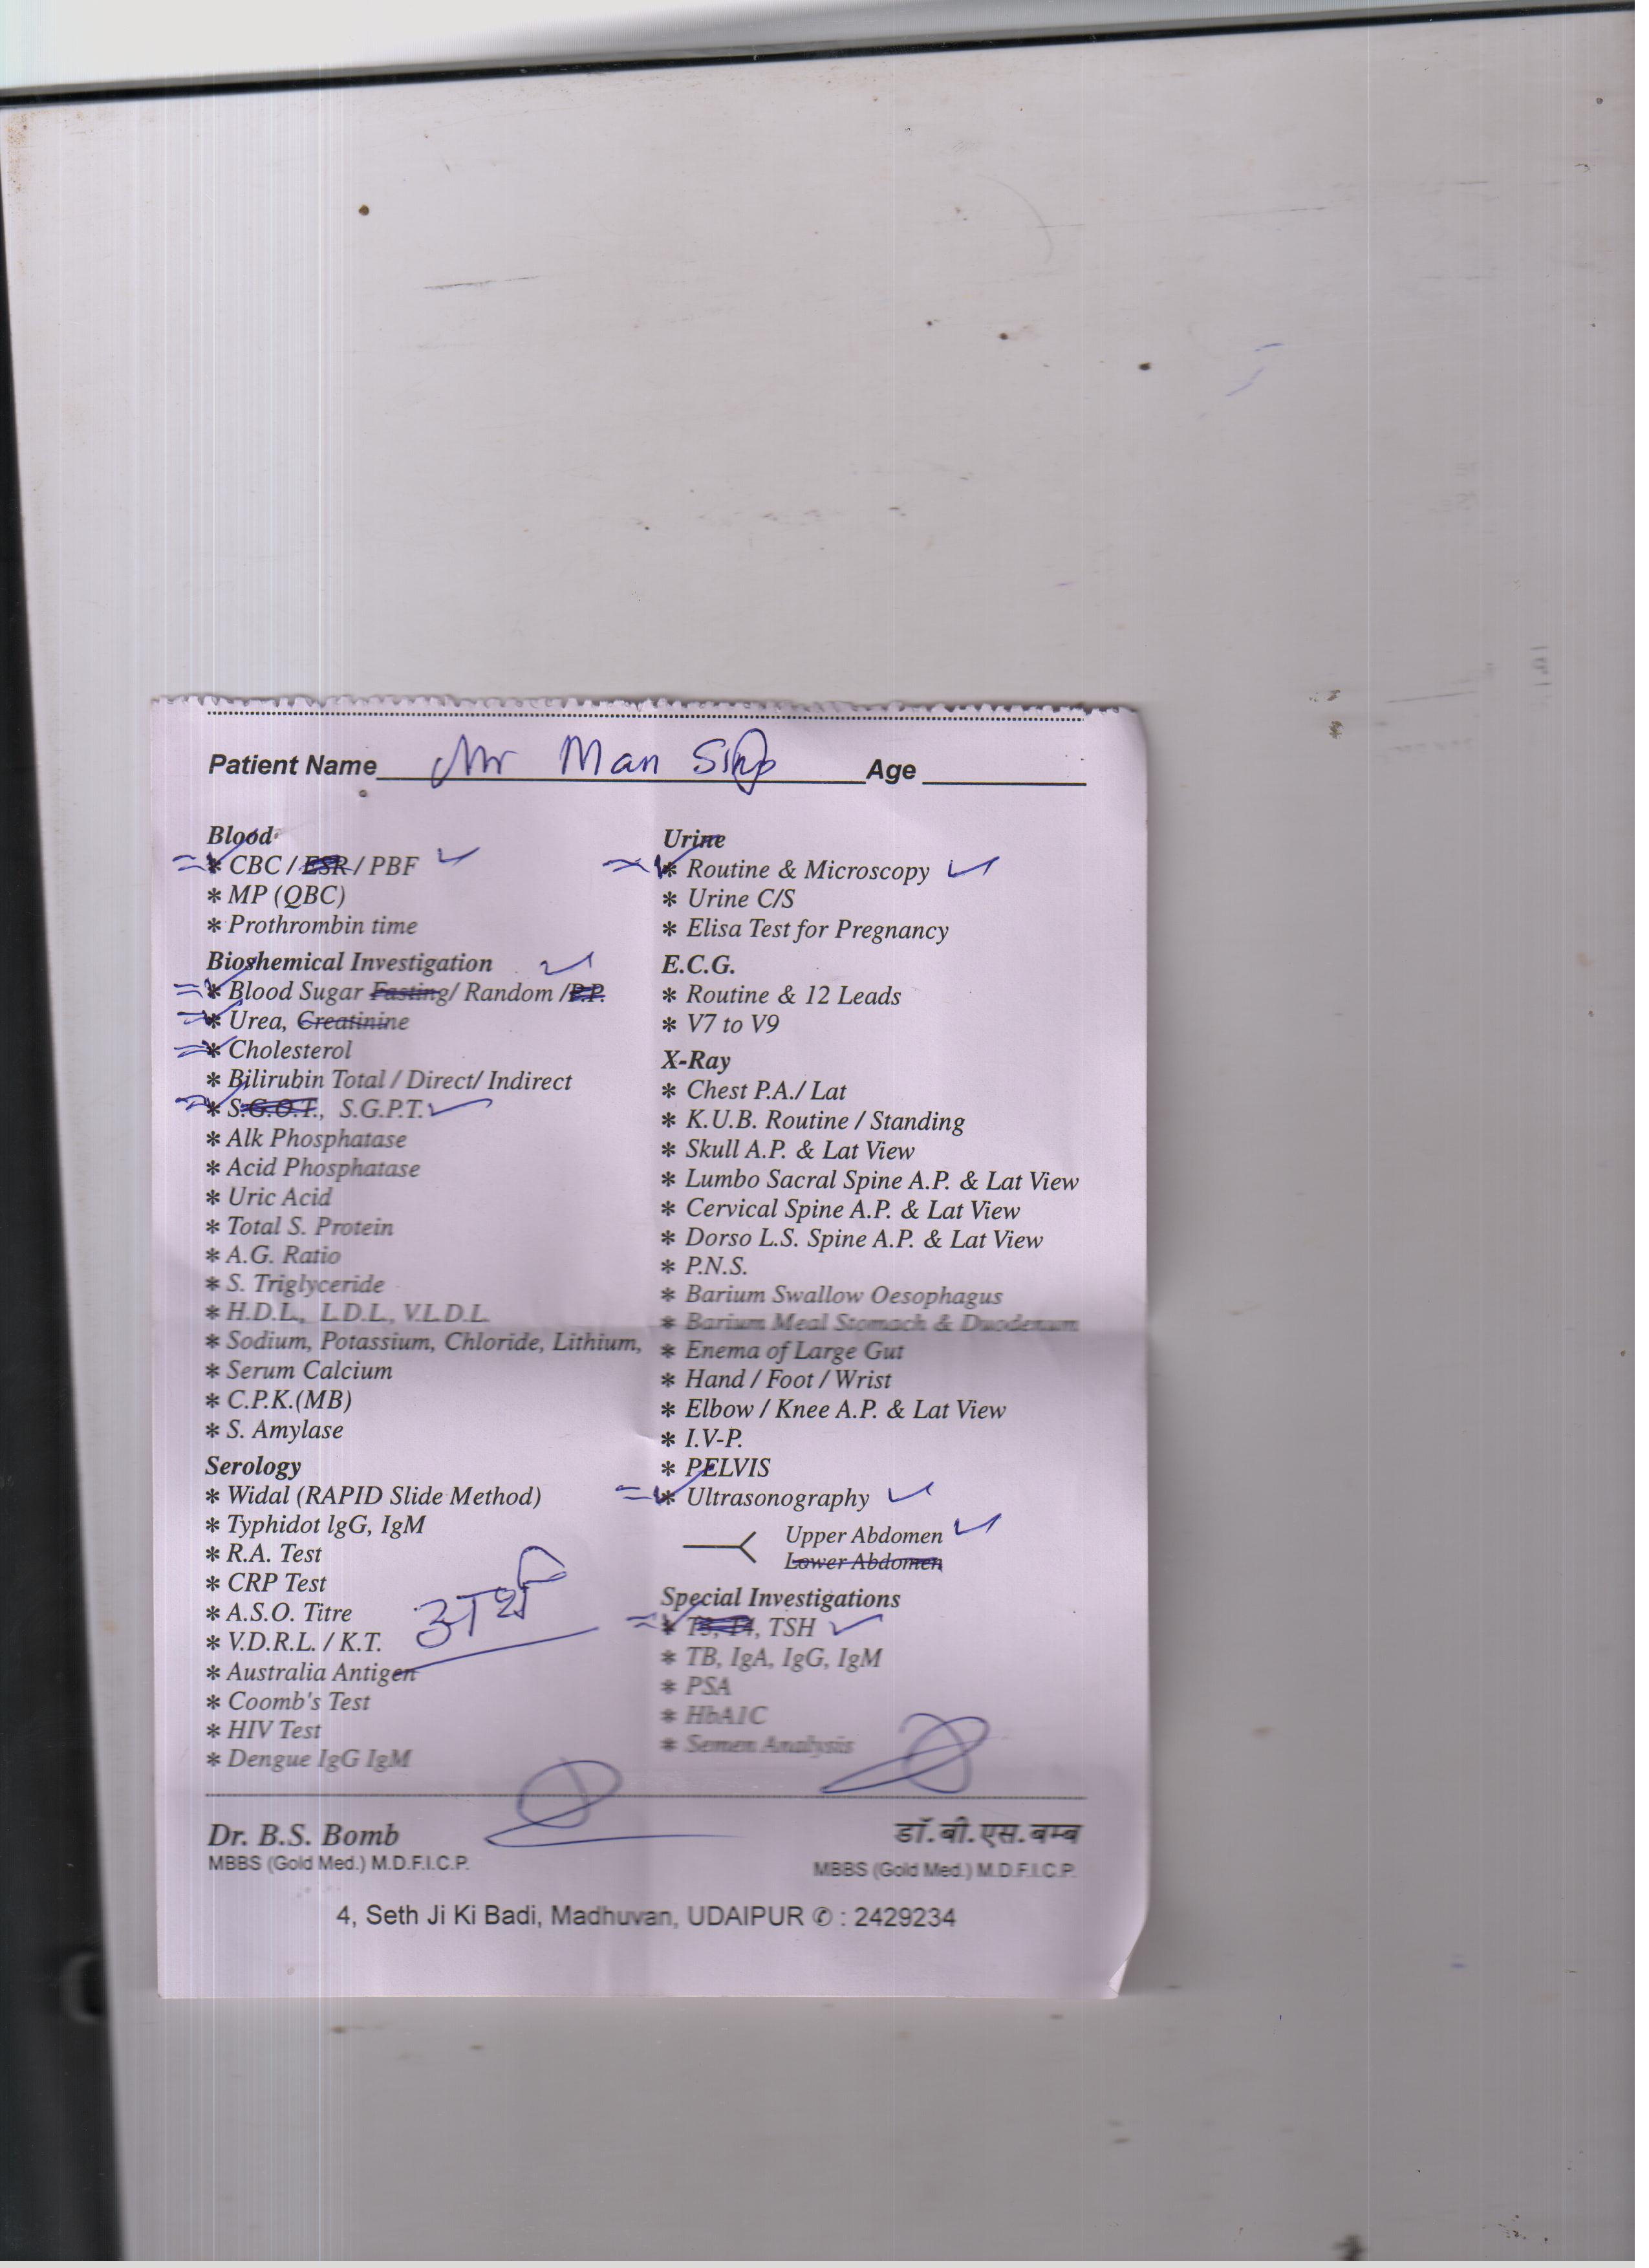 Patient Name Mr Man Singh Age
Blood
* CBC / ESR / PBF
* MP (QBC)
* Prothrombin time
Bioshemical Investigation
* Blood Sugar Fasting/ Random /P.P.
* Urea, Creatinine
* Cholesterol
* Bilirubin Total / Direct/ Indirect
* S.G.O.T., S.G.P.T.
* Alk Phosphatase
* Acid Phosphatase
* Uric Acid
* Total S. Protein
* A.G. Ratio
* S. Triglyceride
* H.D.L., L.D.L., V.L.D.L.
* Sodium, Potassium, Chloride, Lithium,
* Serum Calcium
* C.P.K.(MB)
* S. Amylase
Serology
* Widal (RAPID Slide Method)
* Typhidot lgG, IgM
* R.A. Test
* CRP Test
* A.S.O. Titre
* V.D.R.L. / K.T.
* Australia Antigen
* Coomb's Test
* HIV Test
* Dengue IgG IgM
Urine
* Routine & Microscopy
* Urine C/S
* Elisa Test for Pregnancy
E.C.G.
* Routine & 12 Leads
* V7 to V9
X-Ray
* Chest P.A./ Lat
* K.U.B. Routine / Standing
* Skull A.P. & Lat View
* Lumbo Sacral Spine A.P. & Lat View
* Cervical Spine A.P. & Lat View
* Dorso L.S. Spine A.P. & Lat View
* P.N.S.
* Barium Swallow Oesophagus
* Barium Meal Stomach & Duodenum
* Enema of Large Gut
* Hand / Foot / Wrist
* Elbow / Knee A.P. & Lat View
* I.V-P.
* PELVIS
* Ultrasonography
Upper Abdomen
Lower Abdomen
Special Investigations
* T3, T4, TSH
* TB, IgA, IgG, IgM
* PSA
* HbA1C
* Semen Analysis
Dr. B.S. Bomb
MBBS (Gold Med.) M.D.F.I.C.P.
डॉ. बी. एस. बम्ब
MBBS (Gold Med.) M.D.F.I.C.P.
4, Seth Ji Ki Badi, Madhuvan, UDAIPUR ✆ : 2429234